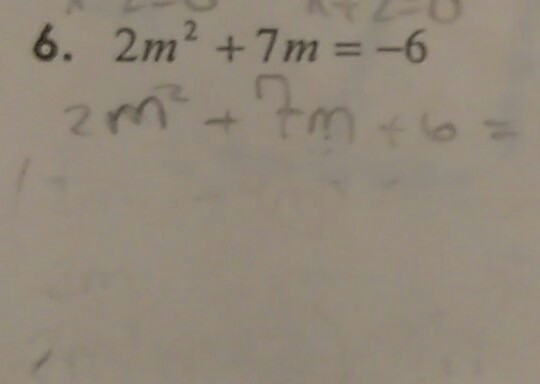 6. 2m² + 7m = −6
2m² + 7m + 6 =